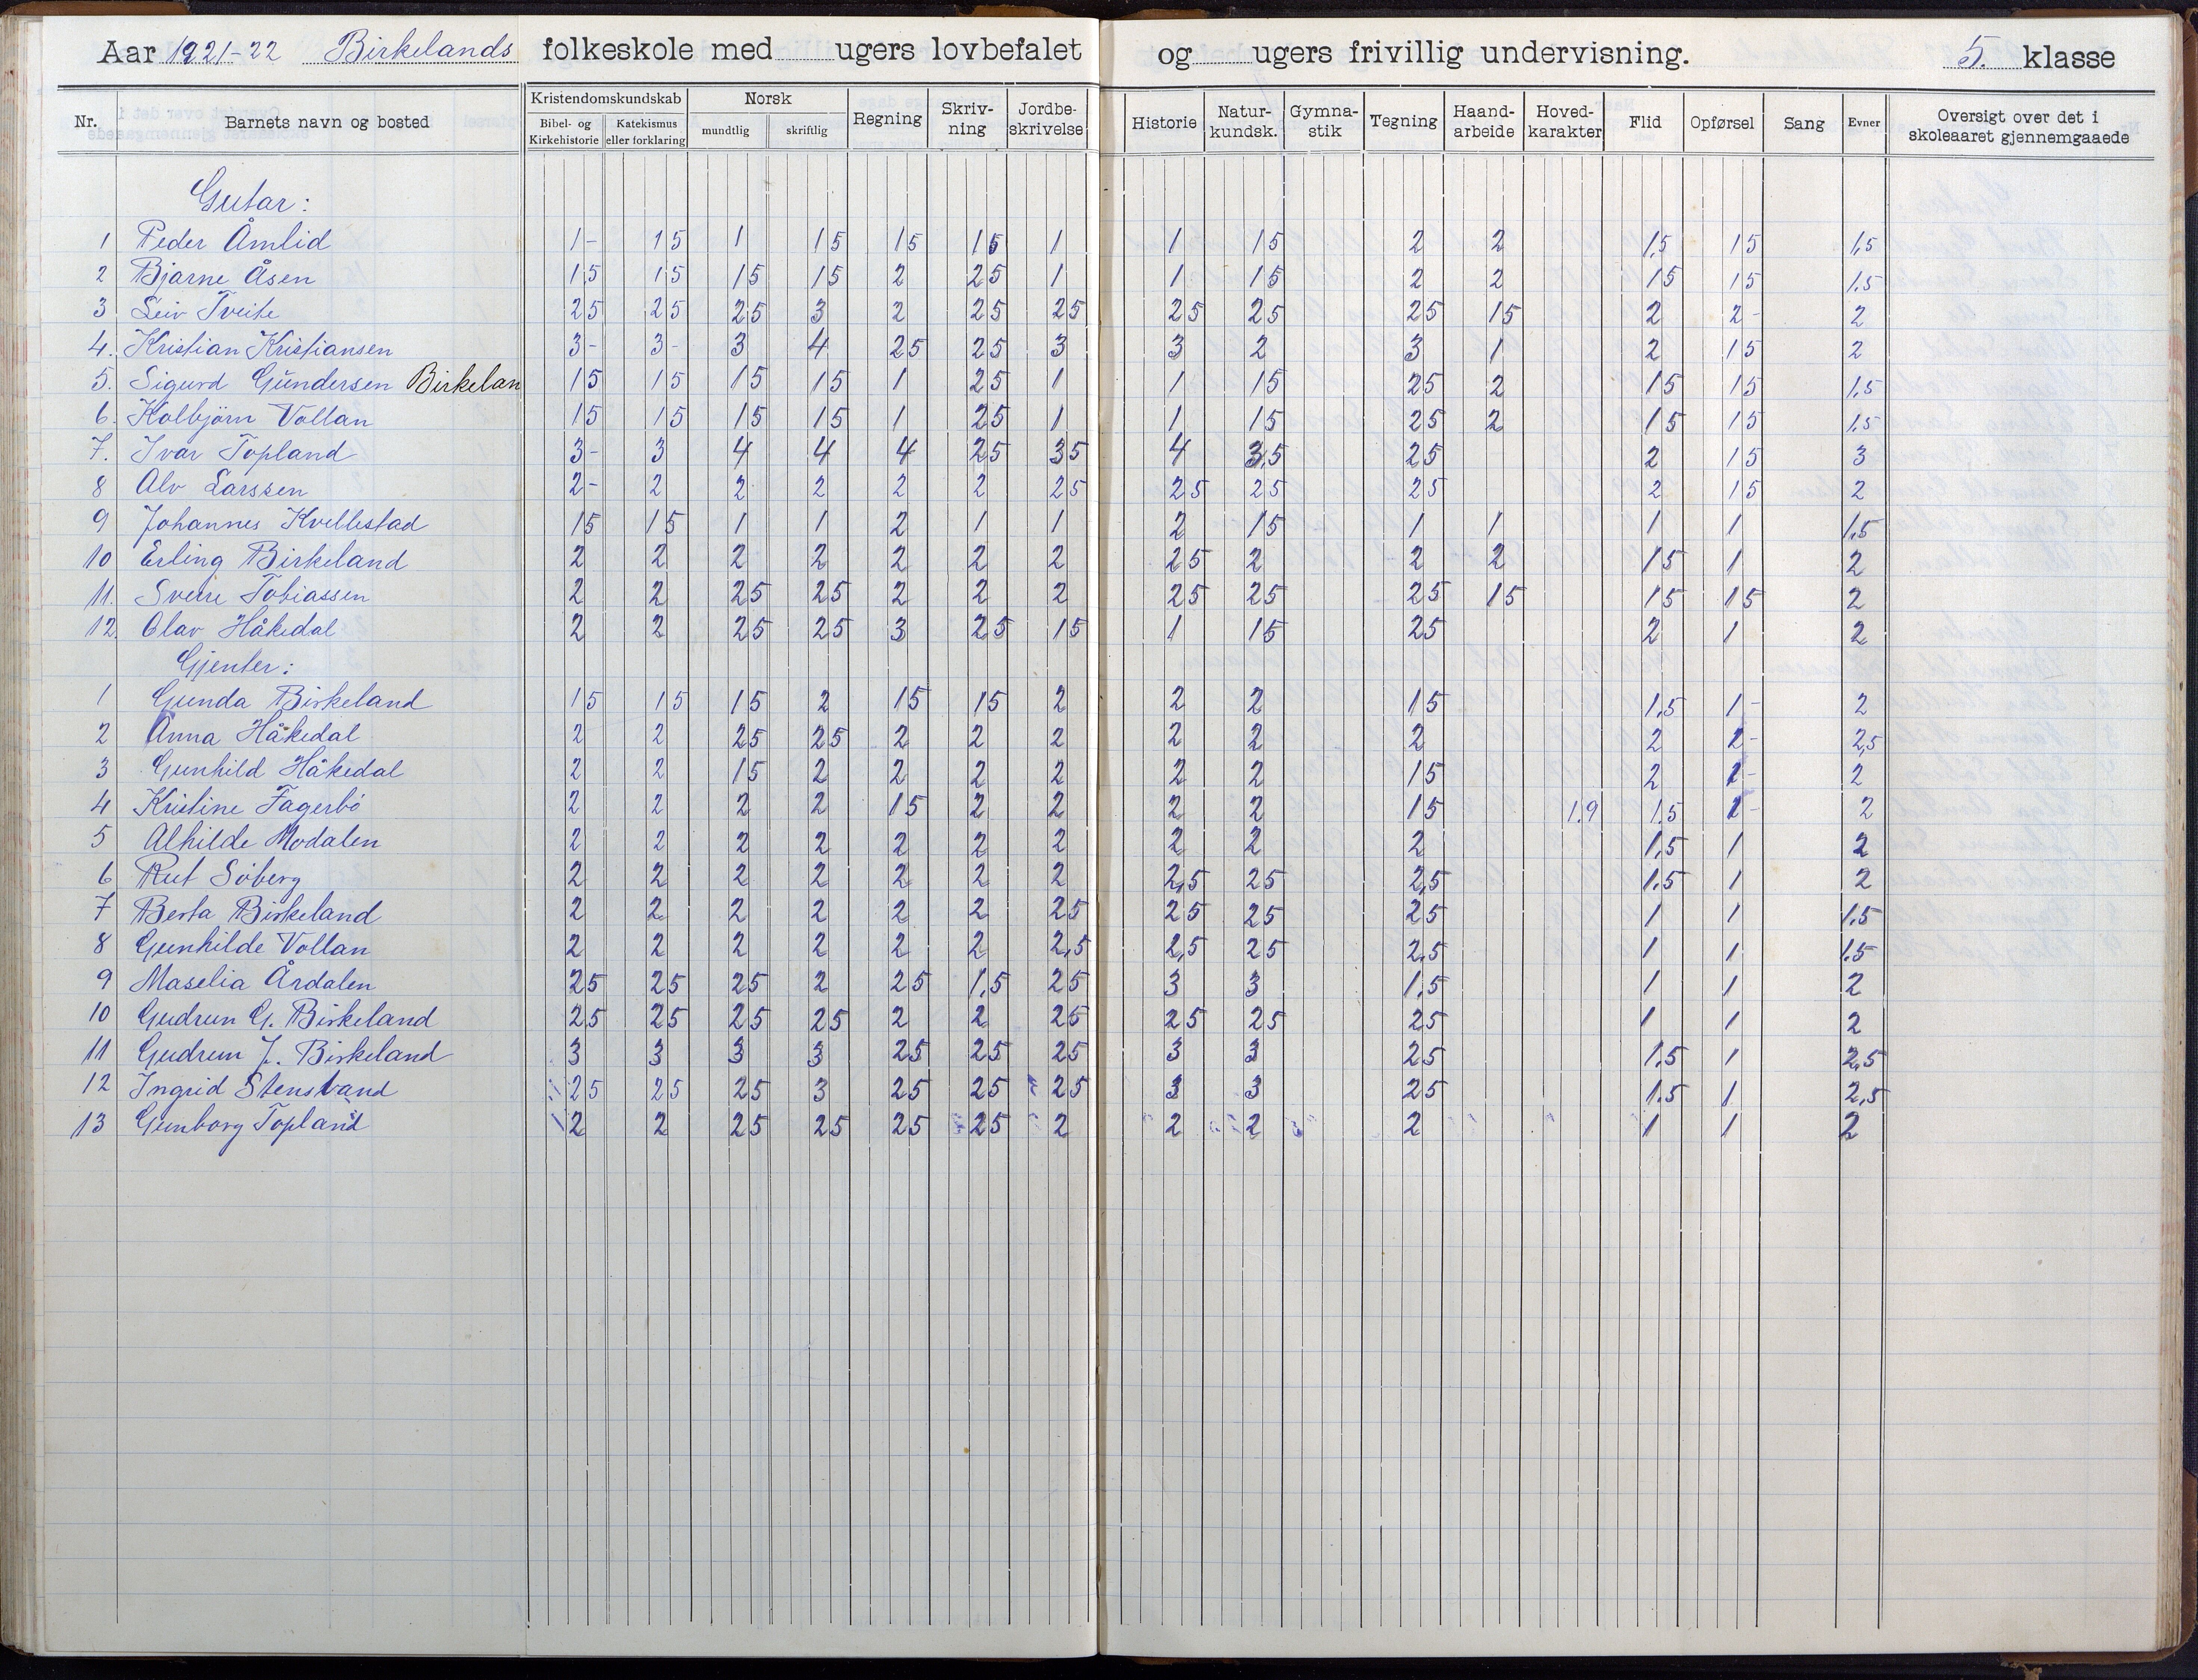 Aar 1921-22 Birkelands folkeskole med ugers lovbefalet og ugers frivillig undervisning. 5. klasse
Nr. Barnets navn og bosted Kristendomskundskab Bibel- og Kirkehistorie Katekismus eller forklaring Norsk mundtlig skriftlig Regning Skriv-ning Jordbe-skrivelse Historie Natur-kundsk. Gymna-stik Tegning Haand-arbeide Hoved-karakter Flid Opførsel Sang Evner Oversigt over det i skoleaaret gjennemgaaede
Gutar:
1 Peder Åmlid 1- 15 1 15 15 15 1 1 15 2 2 1,5 15 1,5
2 Bjarne Åsen 1,5 15 15 15 2 25 1 1 15 2 2 15 15 1,5
3 Leiv Tveite 25 25 25 3 2 25 25 25 25 25 15 2 2- 2
4. Kristian Kristiansen 3- 3- 3 4 25 25 3 3 2 3 1 2 15 2
5. Sigurd Gundersen Birkelan 15 15 15 15 1 25 1 1 15 25 2 15 15 1,5
6. Kolbjörn Vollan 15 15 15 15 1 25 1 1 15 25 2 15 15 1,5
7. Ivar Topland 3- 3 4 4 4 25 35 4 3,5 25 2 15 3
8 Alv Larssen 2- 2 2 2 2 2 25 25 25 25 2 15 2
9 Johannes Kvellestad 15 15 1 1 2 1 1 2 15 1 1 1 1 1,5
10 Erling Birkeland 2 2 2 2 2 2 2 25 2 2 2 15 1 2
11. Sverre Tobiassen 2 2 25 25 2 2 2 25 25 25 15 15 15 2
12. Olav Håkedal 2 2 25 25 3 25 15 1 15 25 2 1 2
Gjenter:
1 Gunda Birkeland 15 15 15 2 15 15 2 2 2 15 1,5 1- 2
2 Anna Håkedal 2 2 25 25 2 2 2 2 2 2 2 2- 2,5
3 Gunhild Håkedal 2 2 15 2 2 2 2 2 2 15 2 1- 2
4 Kristine Fagerbö 2 2 2 2 15 2 2 2 2 15 1.9 1,5 1- 2
5 Alhilde Modalen 2 2 2 2 2 2 2 2 2 2 1,5 1 2
6 Rut Söberg 2 2 2 2 2 2 2 2,5 25 2,5 1.5 1 2
7 Berta Birkeland 2 2 2 2 2 2 25 25 25 25 1 1 1,5
8 Gunhilde Vollan 2 2 2 2 2 2 2,5 2,5 25 2,5 1 1 1.5
9 Maselia Årdalen 25 25 25 2 25 1,5 25 3 3 1,5 1 1 2
10 Gudrun G. Birkeland 25 25 25 25 2 2 25 25 25 25 1 1 2
11 Gudrun J. Birkeland 3 3 3 3 25 25 25 3 3 25 1.5 1 2,5
12 Ingrid Stensvand 25 25 25 3 25 25 25 3 3 25 1.5 1 2,5
13 Gunborg Topland 2 2 25 25 25 25 2 2 2 2 1 1 2